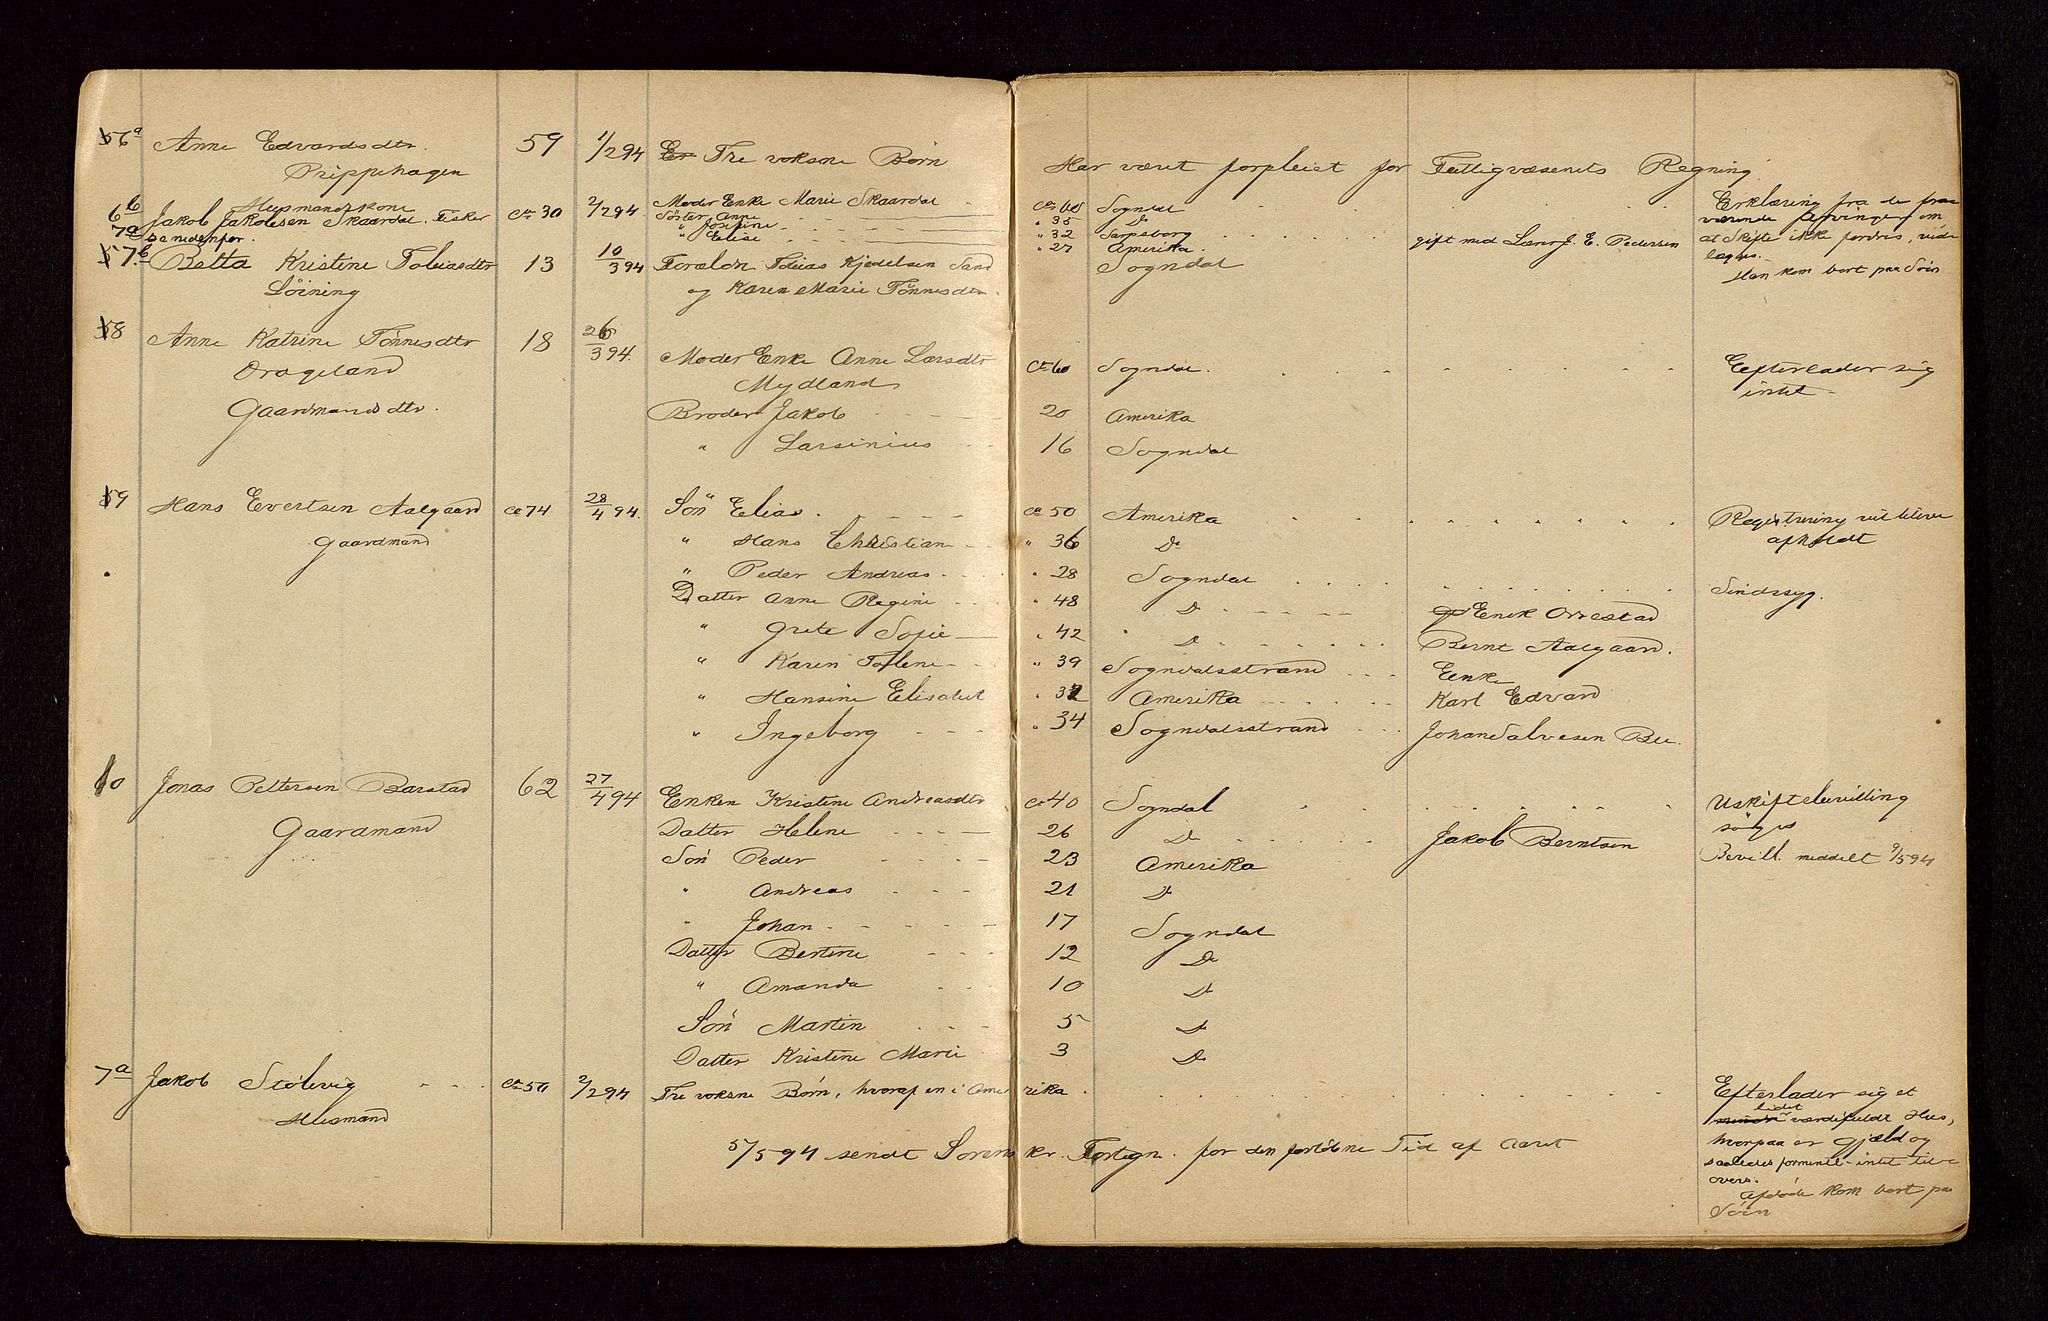 6a Anne Edvardsdtr. 59 1/2 94 Tre voksne Børn Har været forpleiet for Fattigvæsenets Regning
Prippehagen
Husmandskone
6b Jakob Jakobsen Skaardal. Fisker ca 30 2/2 94 Moder Enke Marie Skaardal ca 60 Sogndal Erklæring fra de fra
Søster Anne " 35 Do værende Arvinger om
7a se nedenfor. " Josefine " 32 Sarpsborg gift med Lærer J. E. Pedersen at Skifte ikke fordres, ved
" Elise " 27 Amerika lægges.
7b Betta Kristine Tobiasdtr 13 10/3 94 Forældre Tobias Kjedelsen Sand Sogndal Han kom bort paa Søen
Løining og Karen Marie Tønnesdtr.
8 Anne Katrine Tønnesdtr 18 26/3 94. Moder Enke Anne Larsdtr ca 60 Sogndal. Efterlader sig
Drageland Mydland intet
Gaardmandsdtr. Broder Jakob 20 Amerika
" Larsinius 16 Sogndal
9 Hans Evertsen Aalgaard ca 74 28/4 94. Søn Elias. ca 50 Amerika Registrering vil blive
Gaardmand " Hans Christian " 36 Do afholdt
" Peder Andreas " 28 Sogndal Sindssyg.
Datter Anne Regine " 48 Do Enok Orrestad
" Grete Sofie " 42 Do Bernt Aalgaard.
" Karen Tolene " 39 Sogndalsstrand Enke
" Hansine Elisabet " 37 Amerika Karl Edvard
" Ingeborg " 34 Sogndalsstrand Johan Salvesen Bu.
10 Jonas Pettersen Barstad 62 27/4 94 Enken Kristine Andreasdtr ca 40 Sogndal Uskiftebevilling
Gaardmand Datter Helene 26 Do Jakob Berntsen søges
Søn Peder 23 Amerika Bevill. meddelt 9/5 94
" Andreas 21 Do
" Johan 17 Sogndal
Datter Bertine 12 Do
" Amanda 10 Do
Søn Martin 5 Do
Datter Kristine Marie 3 Do
7a Jakob Stølevig ca 50 2/2 94 Tre voksne Børn, hvoraf en i Amerika. Efterlader sig et
Husmand mindre lidet værdifuldt Hus,
5/5 94 sendt Sorenskr. Fortegn. for den forløbne Tid af Aaret hvorpaa er Gjæld og
saaledes formentl. intet til
overs.
Afdøde kom bort paa
Søen